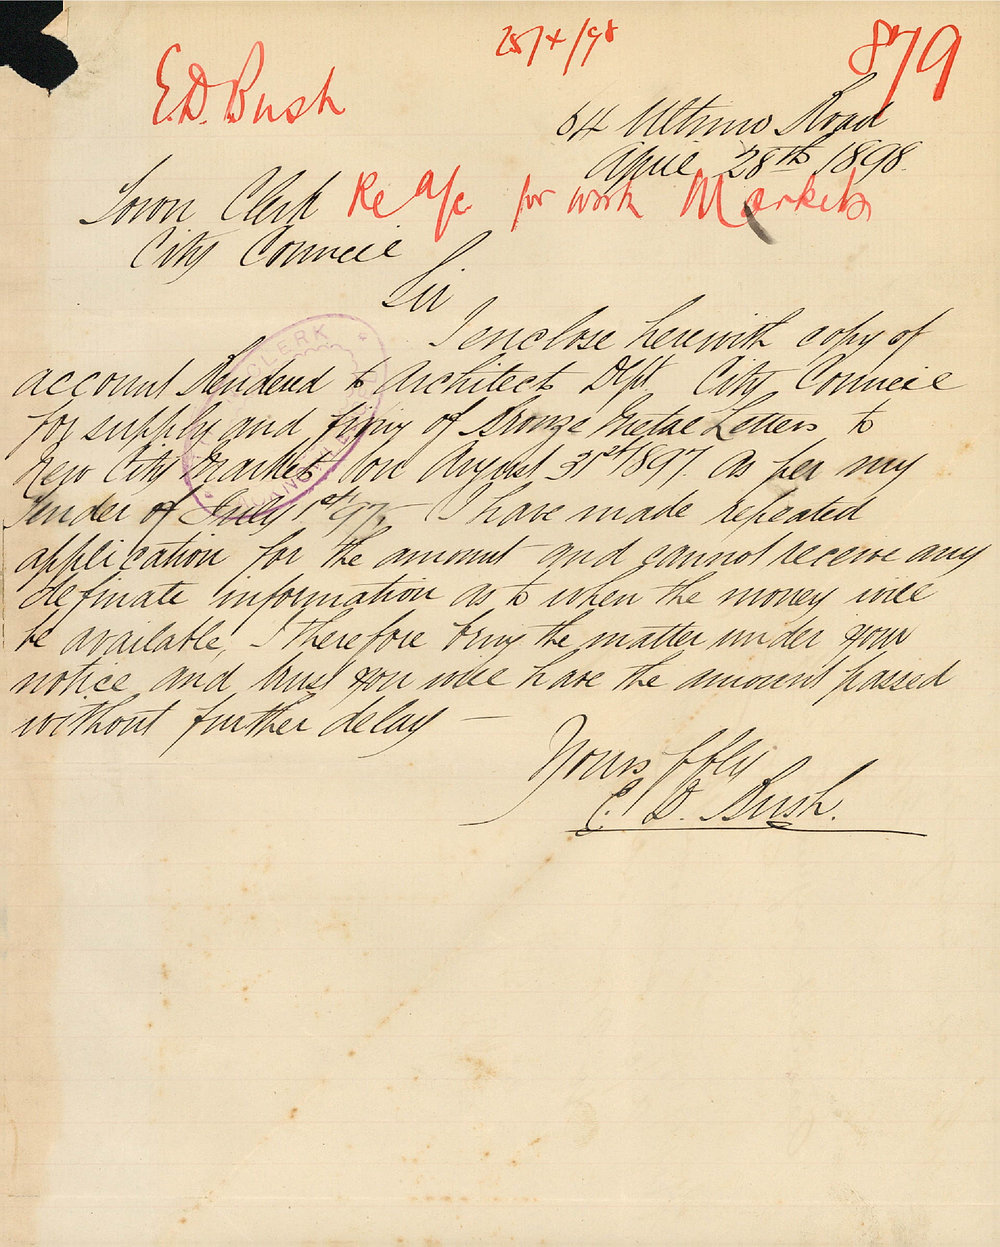 28/4/98
879
E.D. Bush
64 Ultimo Road
April 28th 1898.
Town Clerk
Re a/c for work Markets
City Council
Sir
I enclose herewith copy of
account Rendered to Architects Dept. City Council
for supply and fixing of Bronze Metal Letters to
New City Markets on August 31st 1897 as per my
Tender of July 1st/97, - I have made repeated
application for the amount and cannot receive any
definate information as to when the money will
be available, I therefore bring the matter under your
notice and trust you will have the amount passed
without further delay —
Yours ffly
E. D. Bush.
CLERK